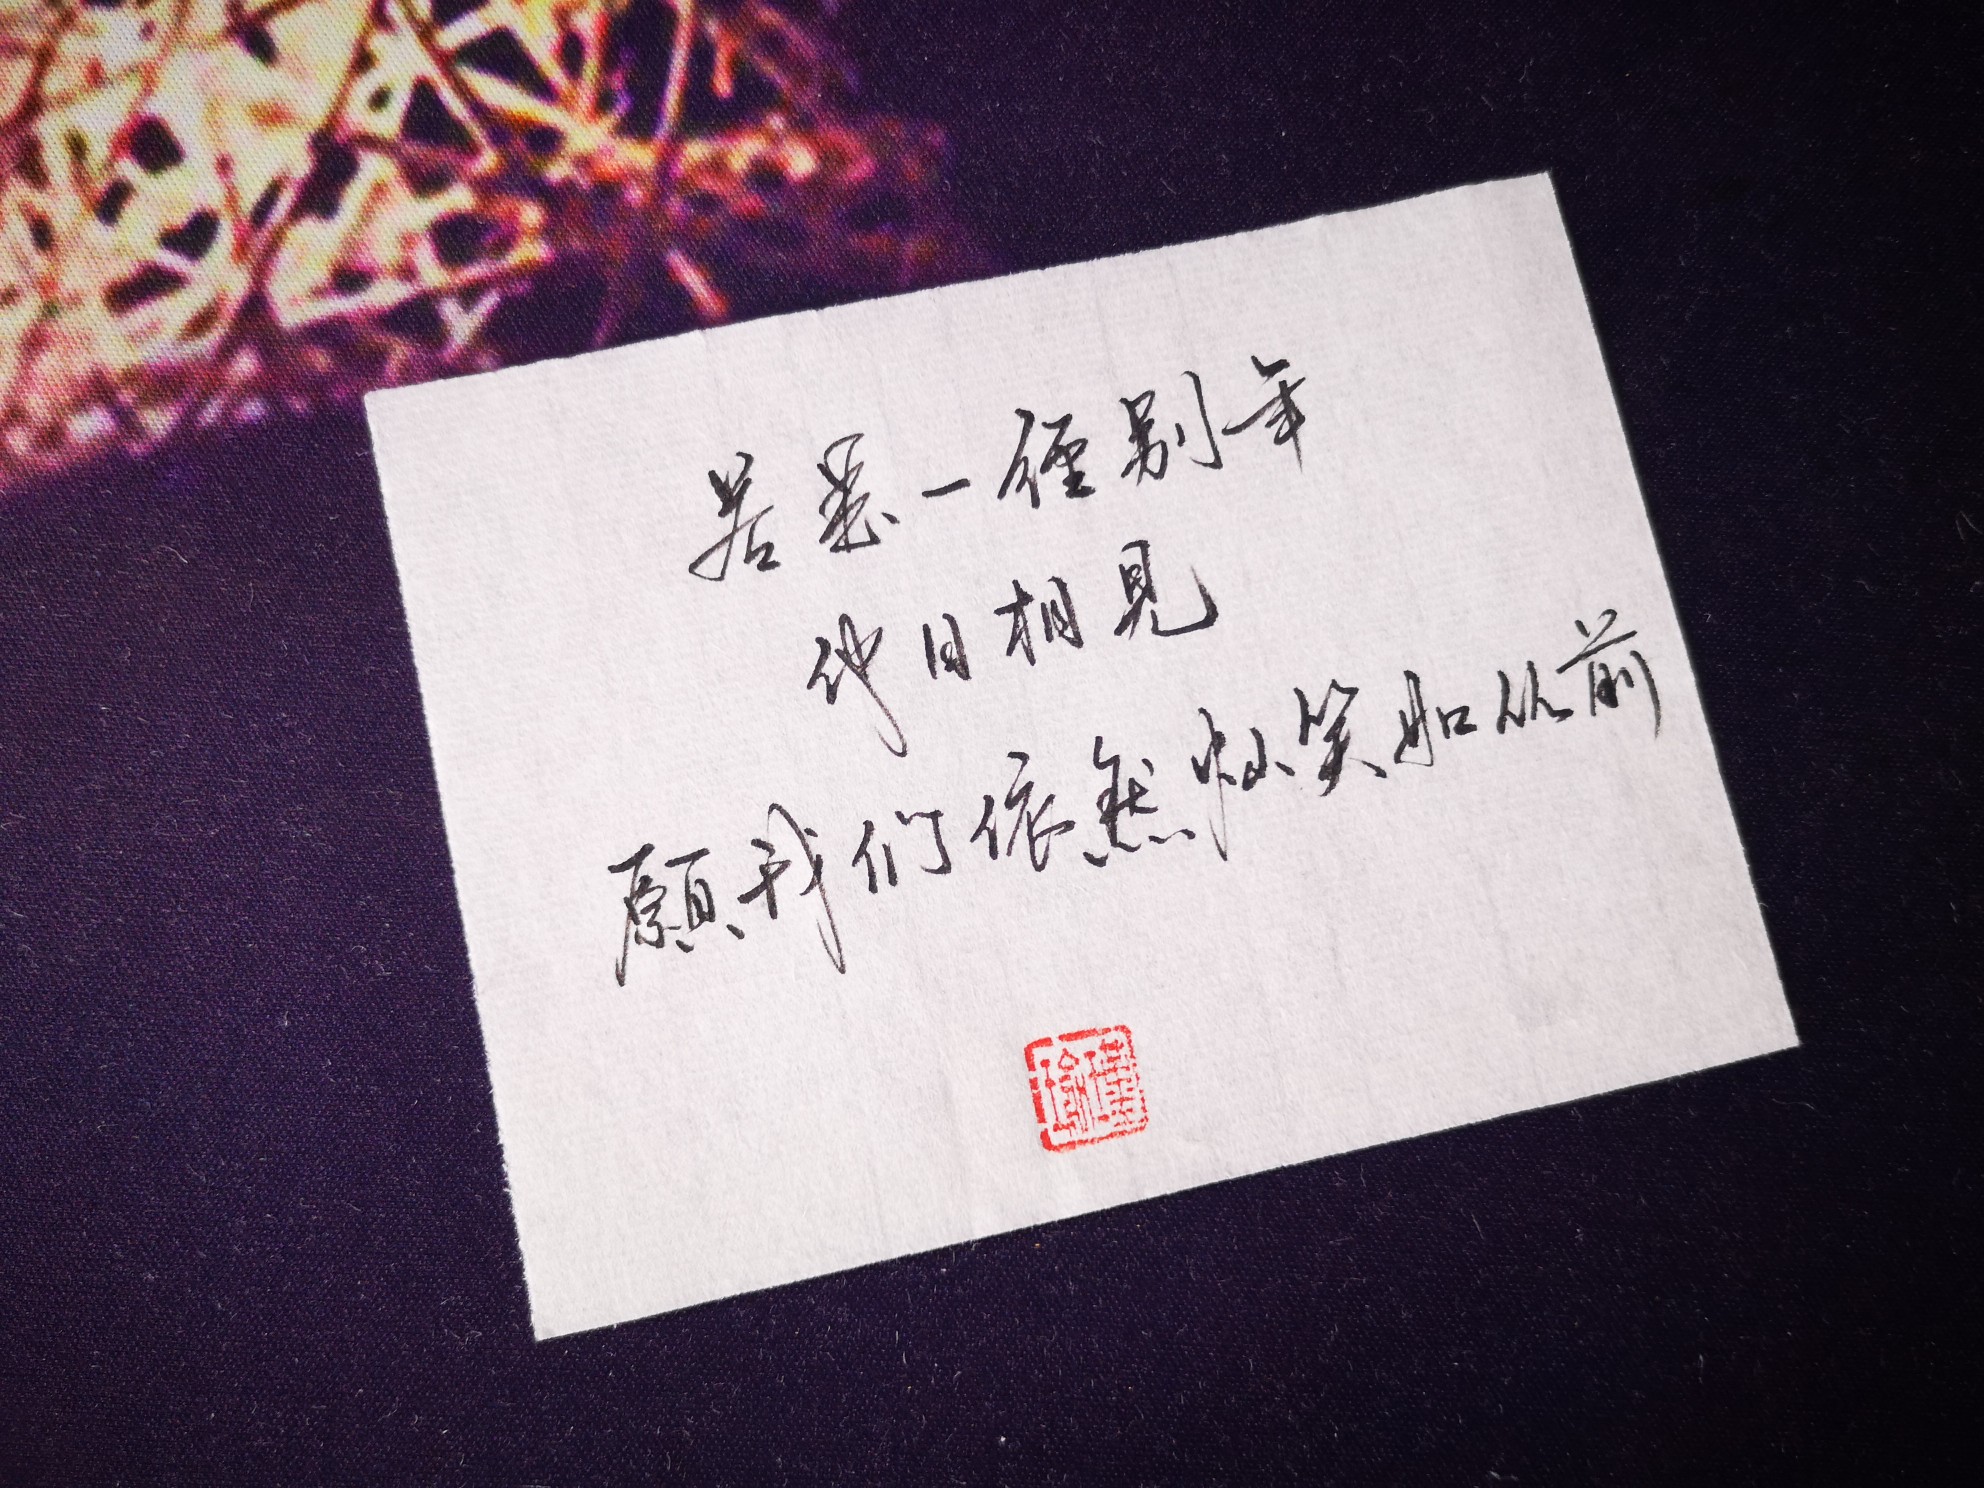 若是一經别年
他日相見
願我们依然灿笑如从前
瑾瑜